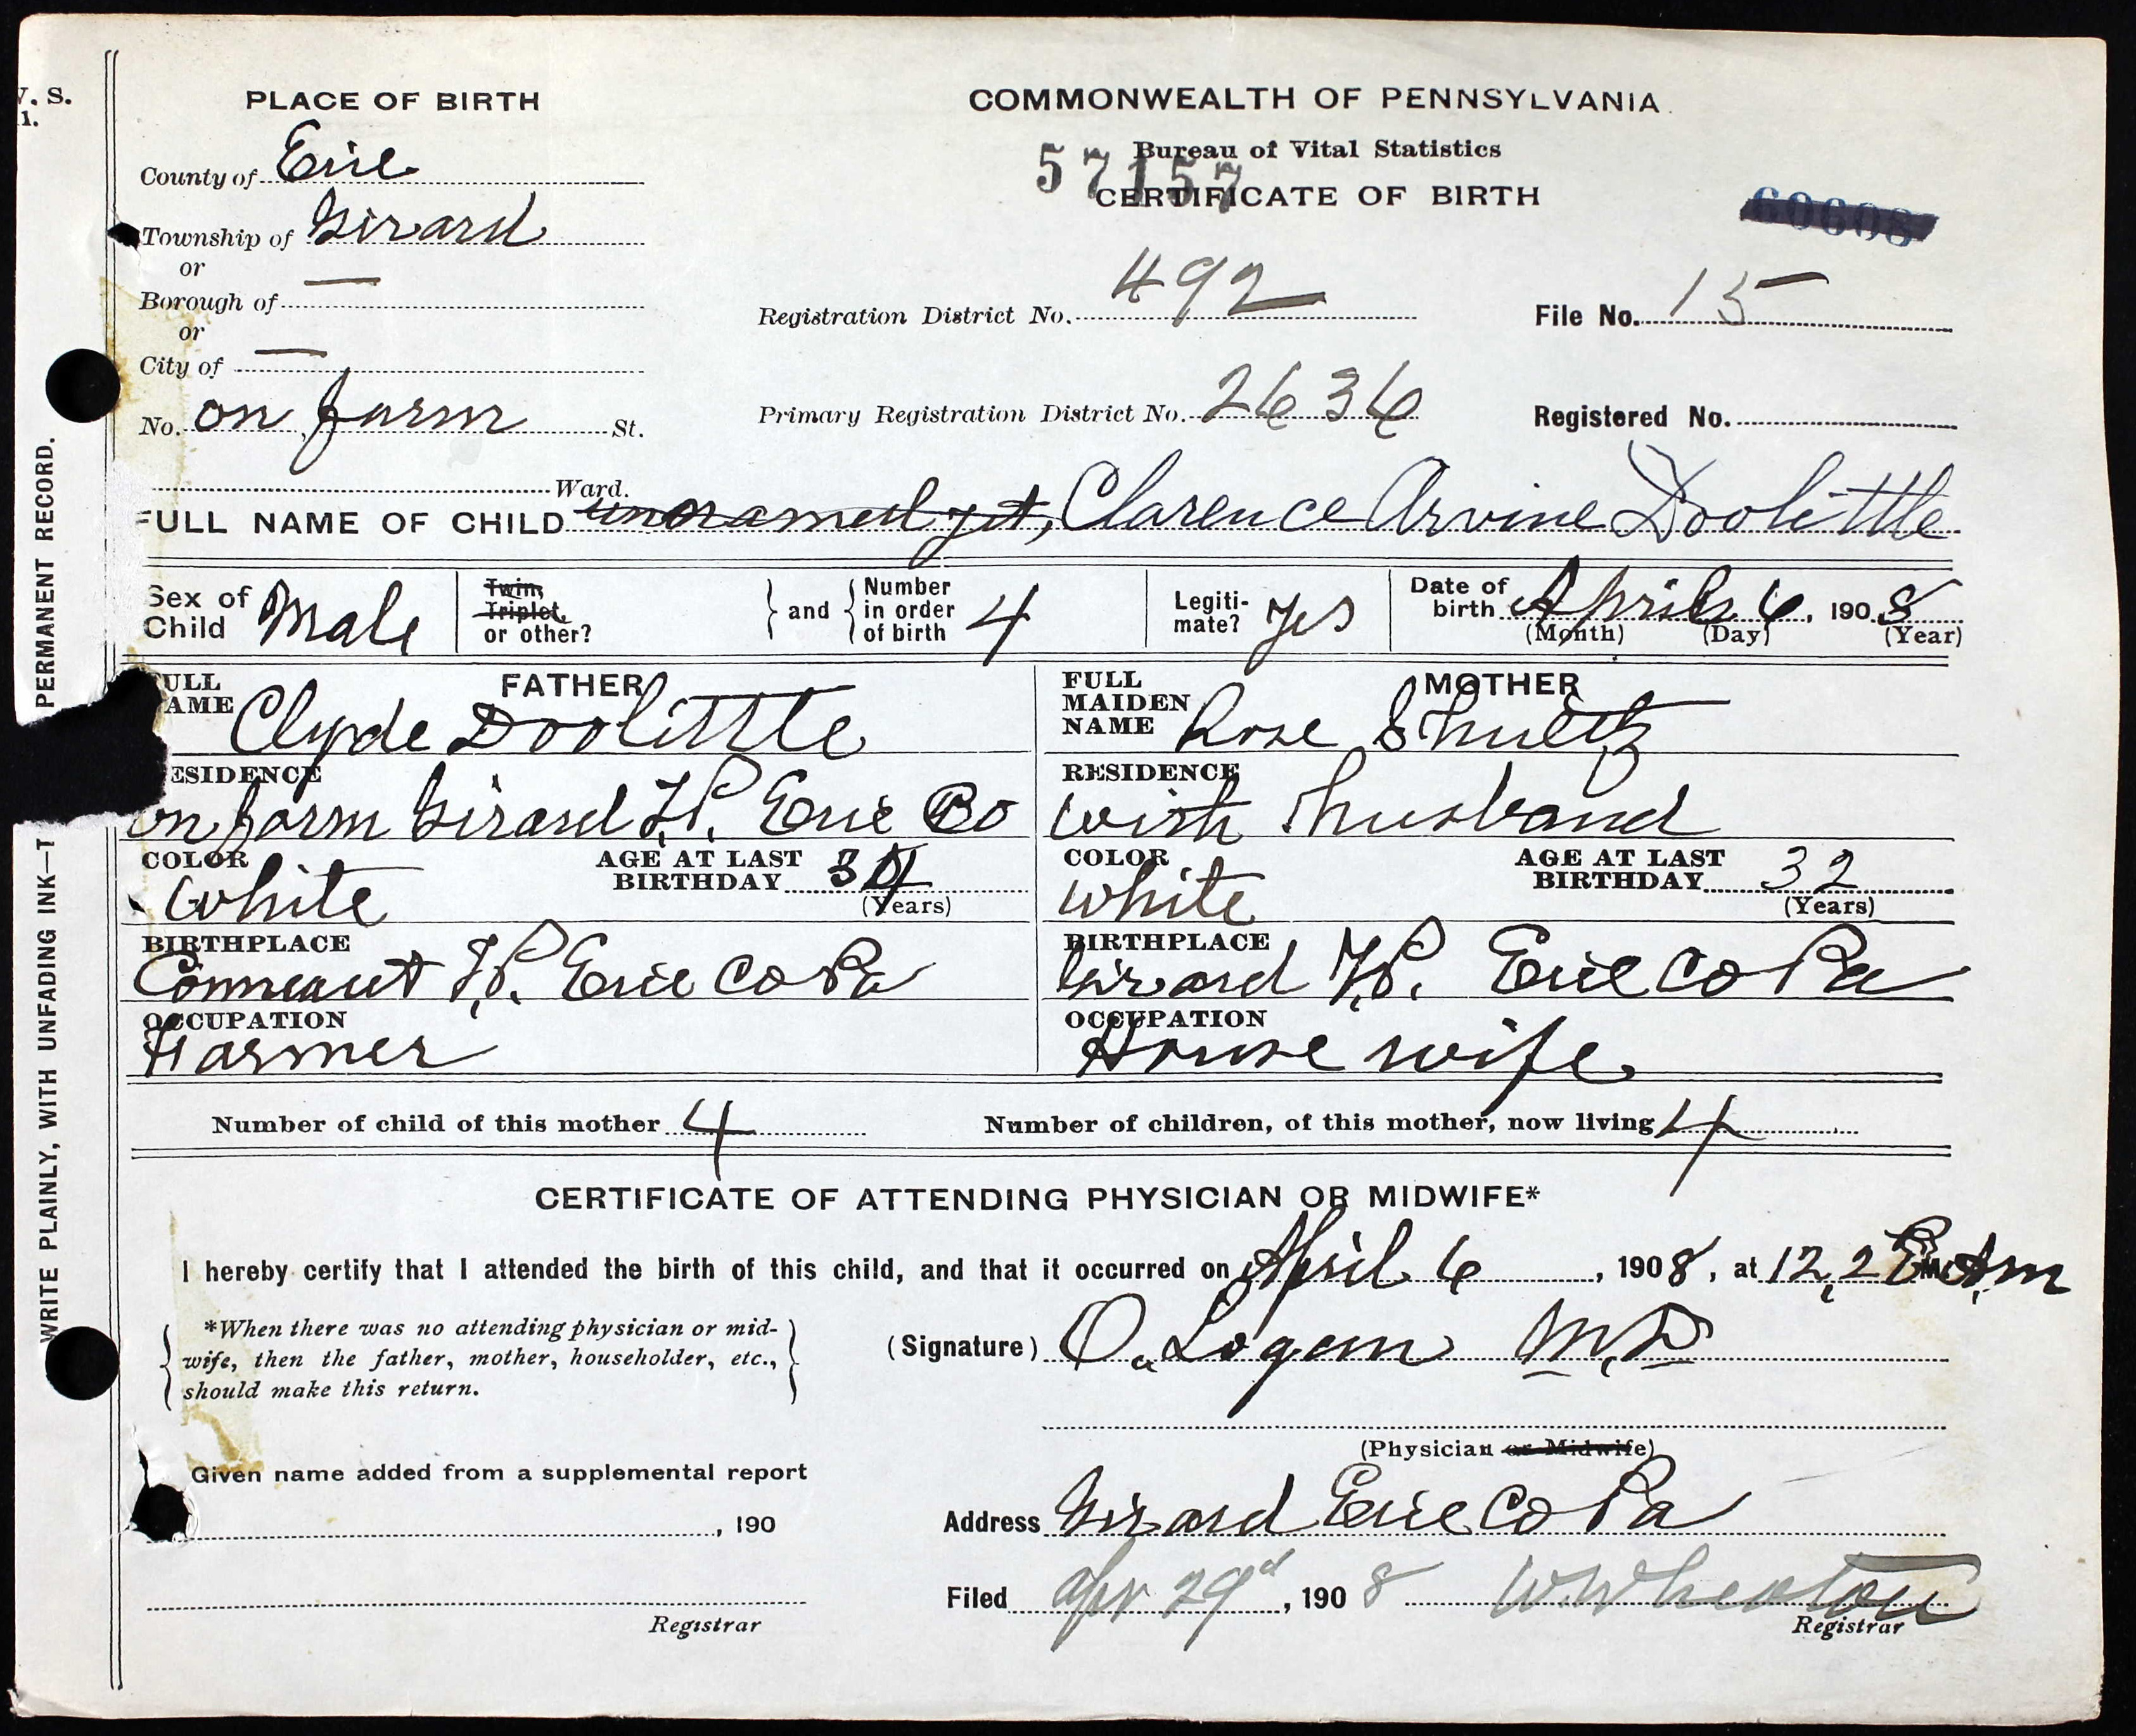 V. S.
1.
PLACE OF BIRTH
COMMONWEALTH OF PENNSYLVANIA
Bureau of Vital Statistics
57157
CERTIFICATE OF BIRTH
60608
County of Erie
Township of Girard
or
Borough of —
or
City of —
No. on farm St.
Ward.
Registration District No. 492
File No. 15
Primary Registration District No. 2636
Registered No.
FULL NAME OF CHILD unnamed yet, Clarence Arvine Doolittle
Sex of Child Male
Twin, Triplet, or other? and Number in order of birth 4
Legiti-mate? Yes
Date of birth April 6, 1908
(Month) (Day) (Year)
FATHER
FULL NAME Clyde Doolittle
RESIDENCE
on farm Girard T.P. Erie Co
COLOR White
AGE AT LAST BIRTHDAY 34 (Years)
BIRTHPLACE
Conneaut T.P. Erie Co Pa
OCCUPATION
Farmer
MOTHER
FULL MAIDEN NAME Rose Shultz
RESIDENCE
with husband
COLOR White
AGE AT LAST BIRTHDAY 32 (Years)
BIRTHPLACE
Girard T.P. Erie Co Pa
OCCUPATION
House wife
Number of child of this mother 4
Number of children, of this mother, now living 4
CERTIFICATE OF ATTENDING PHYSICIAN OR MIDWIFE*
I hereby certify that I attended the birth of this child, and that it occurred on April 6, 1908, at 12,2 A.m
*When there was no attending physician or mid-
wife, then the father, mother, householder, etc.,
should make this return.
(Signature) O. Logan M.D
(Physician or Midwife)
Given name added from a supplemental report
, 190
Registrar
Address Girard Erie Co Pa
Filed Apr 29d, 1908 W W Wheaton
Registrar
WRITE PLAINLY, WITH UNFADING INK—T
PERMANENT RECORD.